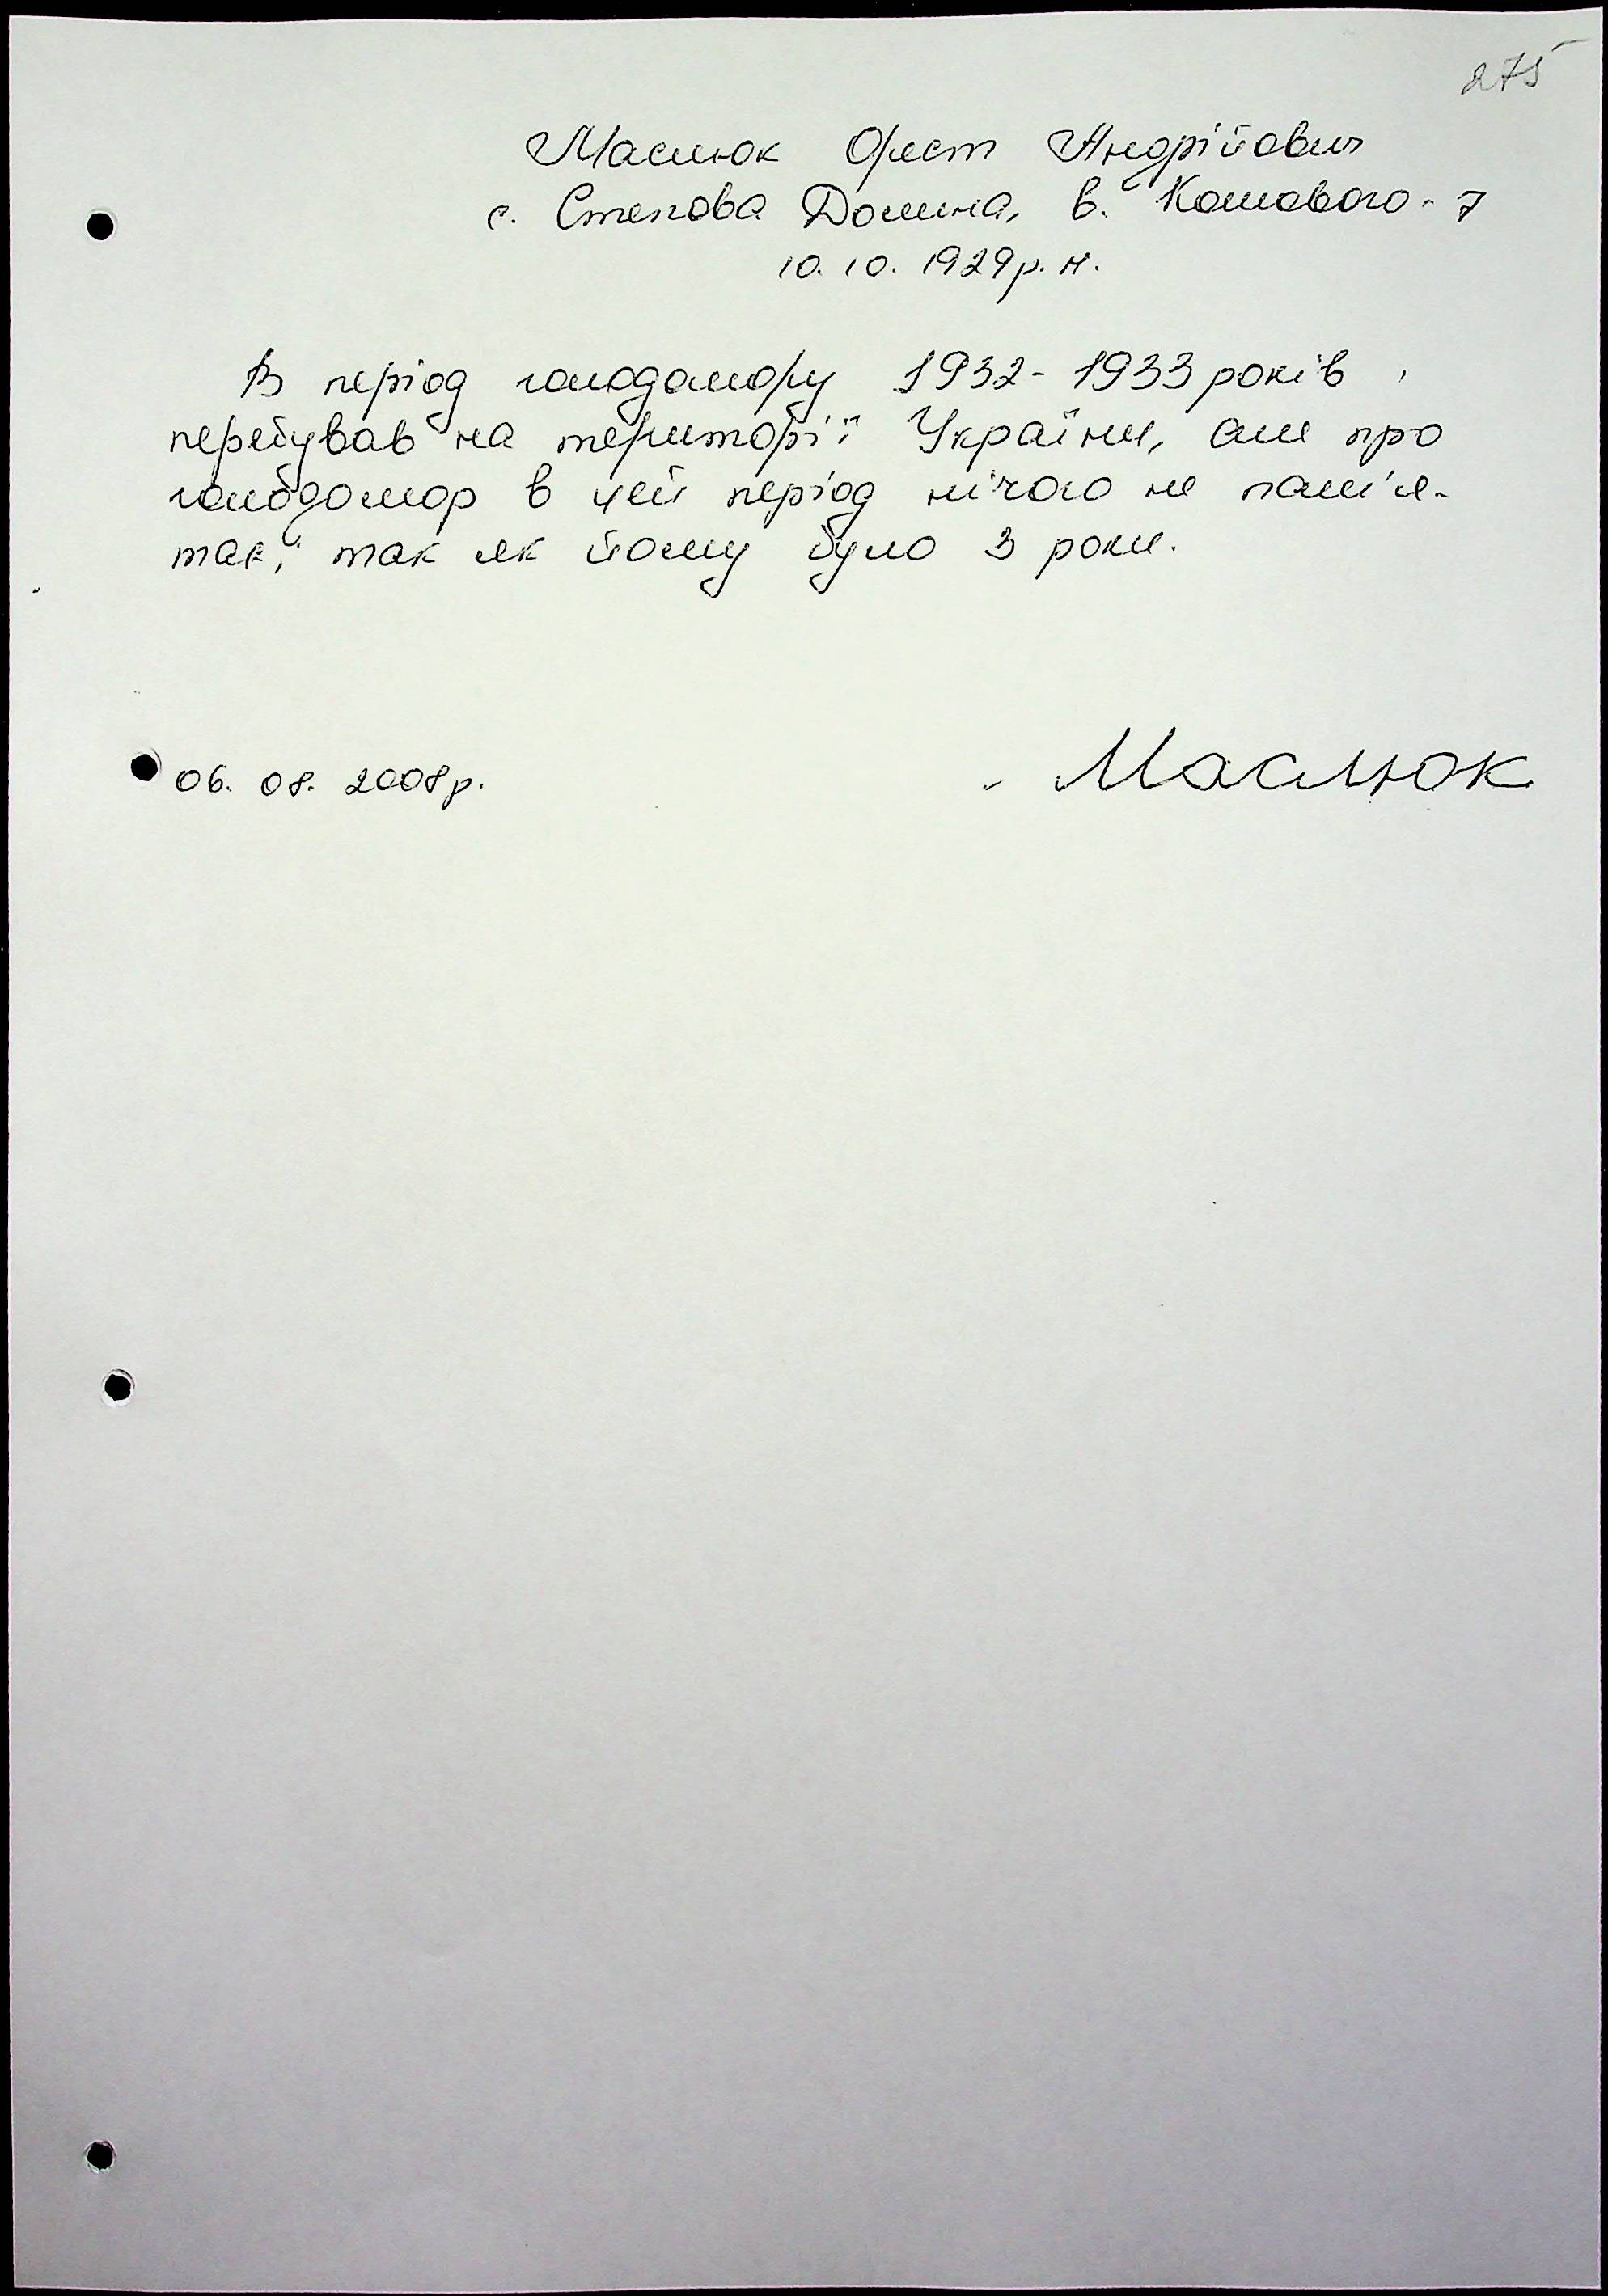 275
Маслюк Орест Андрійович
с. Степова Долина, в. Кошового - 7
10. 10. 1929 р. н.
В період голодомору 1932 - 1933 років,
перебував на території України, але про
голодомор в цей період нічого не пам'я-
тає, так як йому було 3 роки.
06. 08. 2008 р.
Маслюк